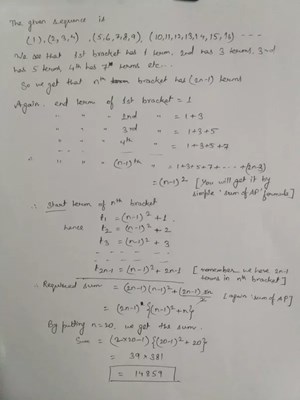 The given sequence is
(1), (2,3,4), (5,6,7,8,9), (10,11,12,13,14,15,16) ----
We see that 1st bracket has 1 term, 2nd has 3 terms, 3rd
has 5 terms, 4th has 7 terms etc...
So we get that nth bracket has (2n-1) terms
Again, end term of 1st bracket = 1
" " " 2nd " = 1+3
" " " 3rd " = 1+3+5
" " " 4th " = 1+3+5+7
" " " (n-1)th " = 1+3+5+7+ - - - +(2n-3)
= (n-1)² [You will get it by
simple 'sum of AP' formula]
∴ Start term of nth bracket
t₁ = (n-1)² + 1
hence t₂ = (n-1)² + 2
t₃ = (n-1)² + 3
t₂ₙ₋₁ = (n-1)² + 2n-1 [remember we have 2n-1
terms in nth bracket]
∴ Required sum = (2n-1)(n-1)² + (2n-1)2n/2
[again 'sum of AP']
= (2n-1) {(n-1)² + n}
By putting n=20, we get the sum.
Sum = (2×20-1) {(20-1)² + 20}
= 39 × 381
= 14859